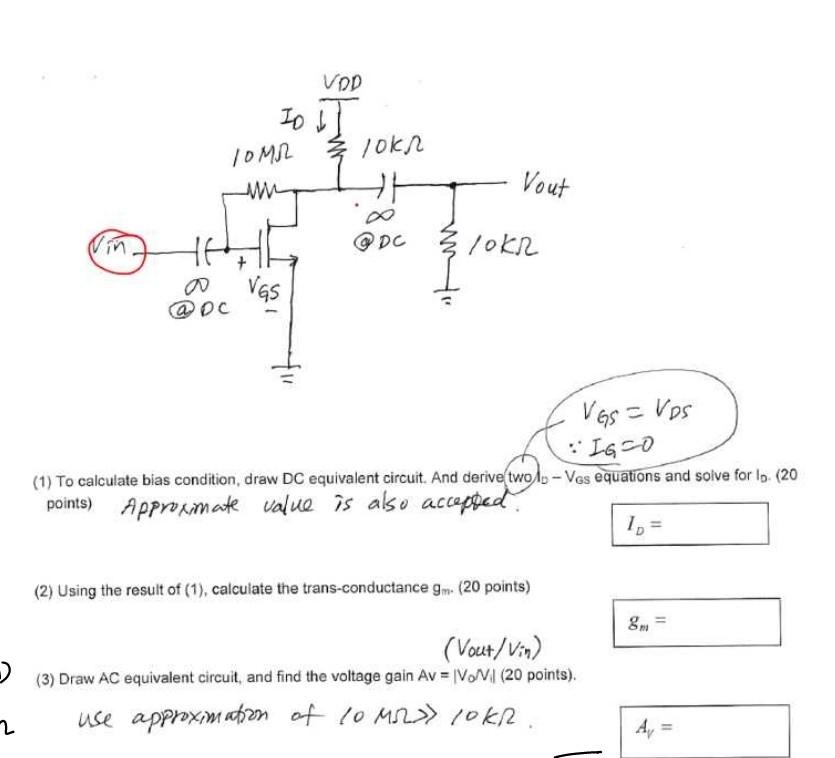 VDD
ID ↓
10MΩ
10KΩ
Vout
Vin
∞
@DC
10KΩ
+
VGS
−
∞
@DC
VGS = VDS
∵ IG=0
(1) To calculate bias condition, draw DC equivalent circuit. And derive two ID – VGS equations and solve for ID. (20
points) Approximate value is also accepted.
ID =
(2) Using the result of (1), calculate the trans-conductance gm. (20 points)
gm =
(Vout/Vin)
(3) Draw AC equivalent circuit, and find the voltage gain Av = |Vo/Vi| (20 points).
use approximation of 10 MΩ>> 10KΩ.
Av =